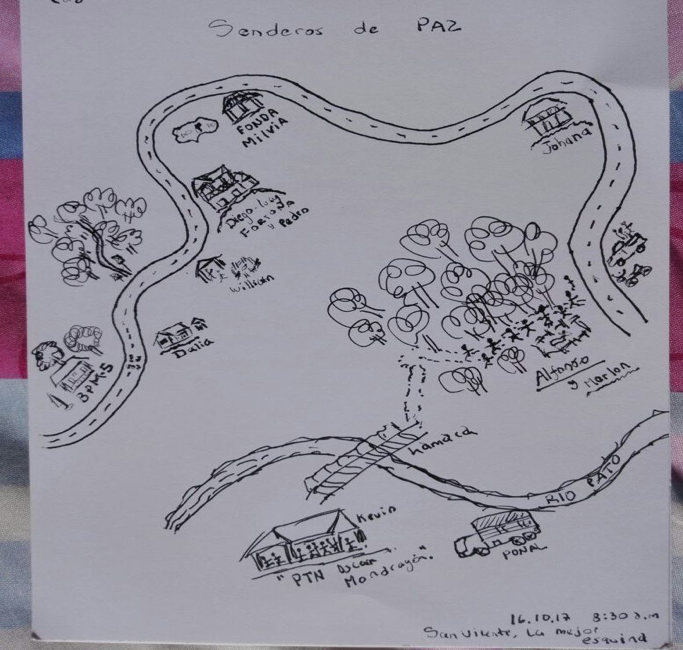 Senderos de PAZ
FONDA
Milvia
Johana
Diego-Luz
FORTUNA
y Pedro
William
Dalia
BPMS
Alfonso
y Marlon
hamaca
RIO PATO
Kevin
"PTN Oscar
Mondragón"
PONAL
16.10.17 8:30 a.m
San Vicente, La mejor
esquina